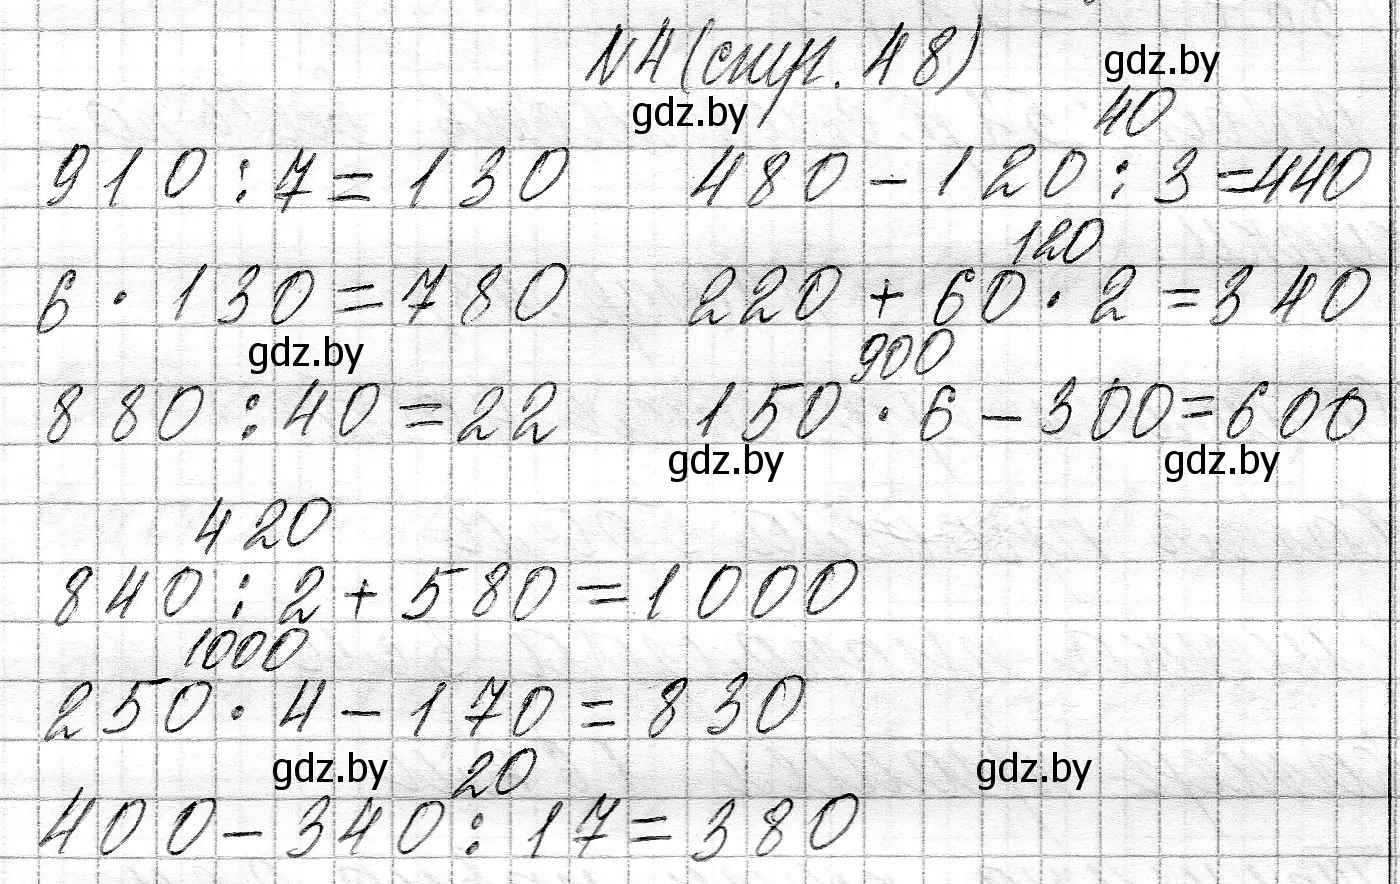 N4 (стр. 48)
gdz.by
gdz.by
40
910 : 7 = 130
480 - 120 : 3 = 440
120
6 · 130 = 780
220 + 60 · 2 = 340
gdz.by
900
880 : 40 = 22
150 · 6 - 300 = 600
gdz.by
gdz.by
420
840 : 2 + 580 = 1000
1000
250 · 4 - 170 = 830
gdz.by
20
gdz.by
400 - 340 : 17 = 380